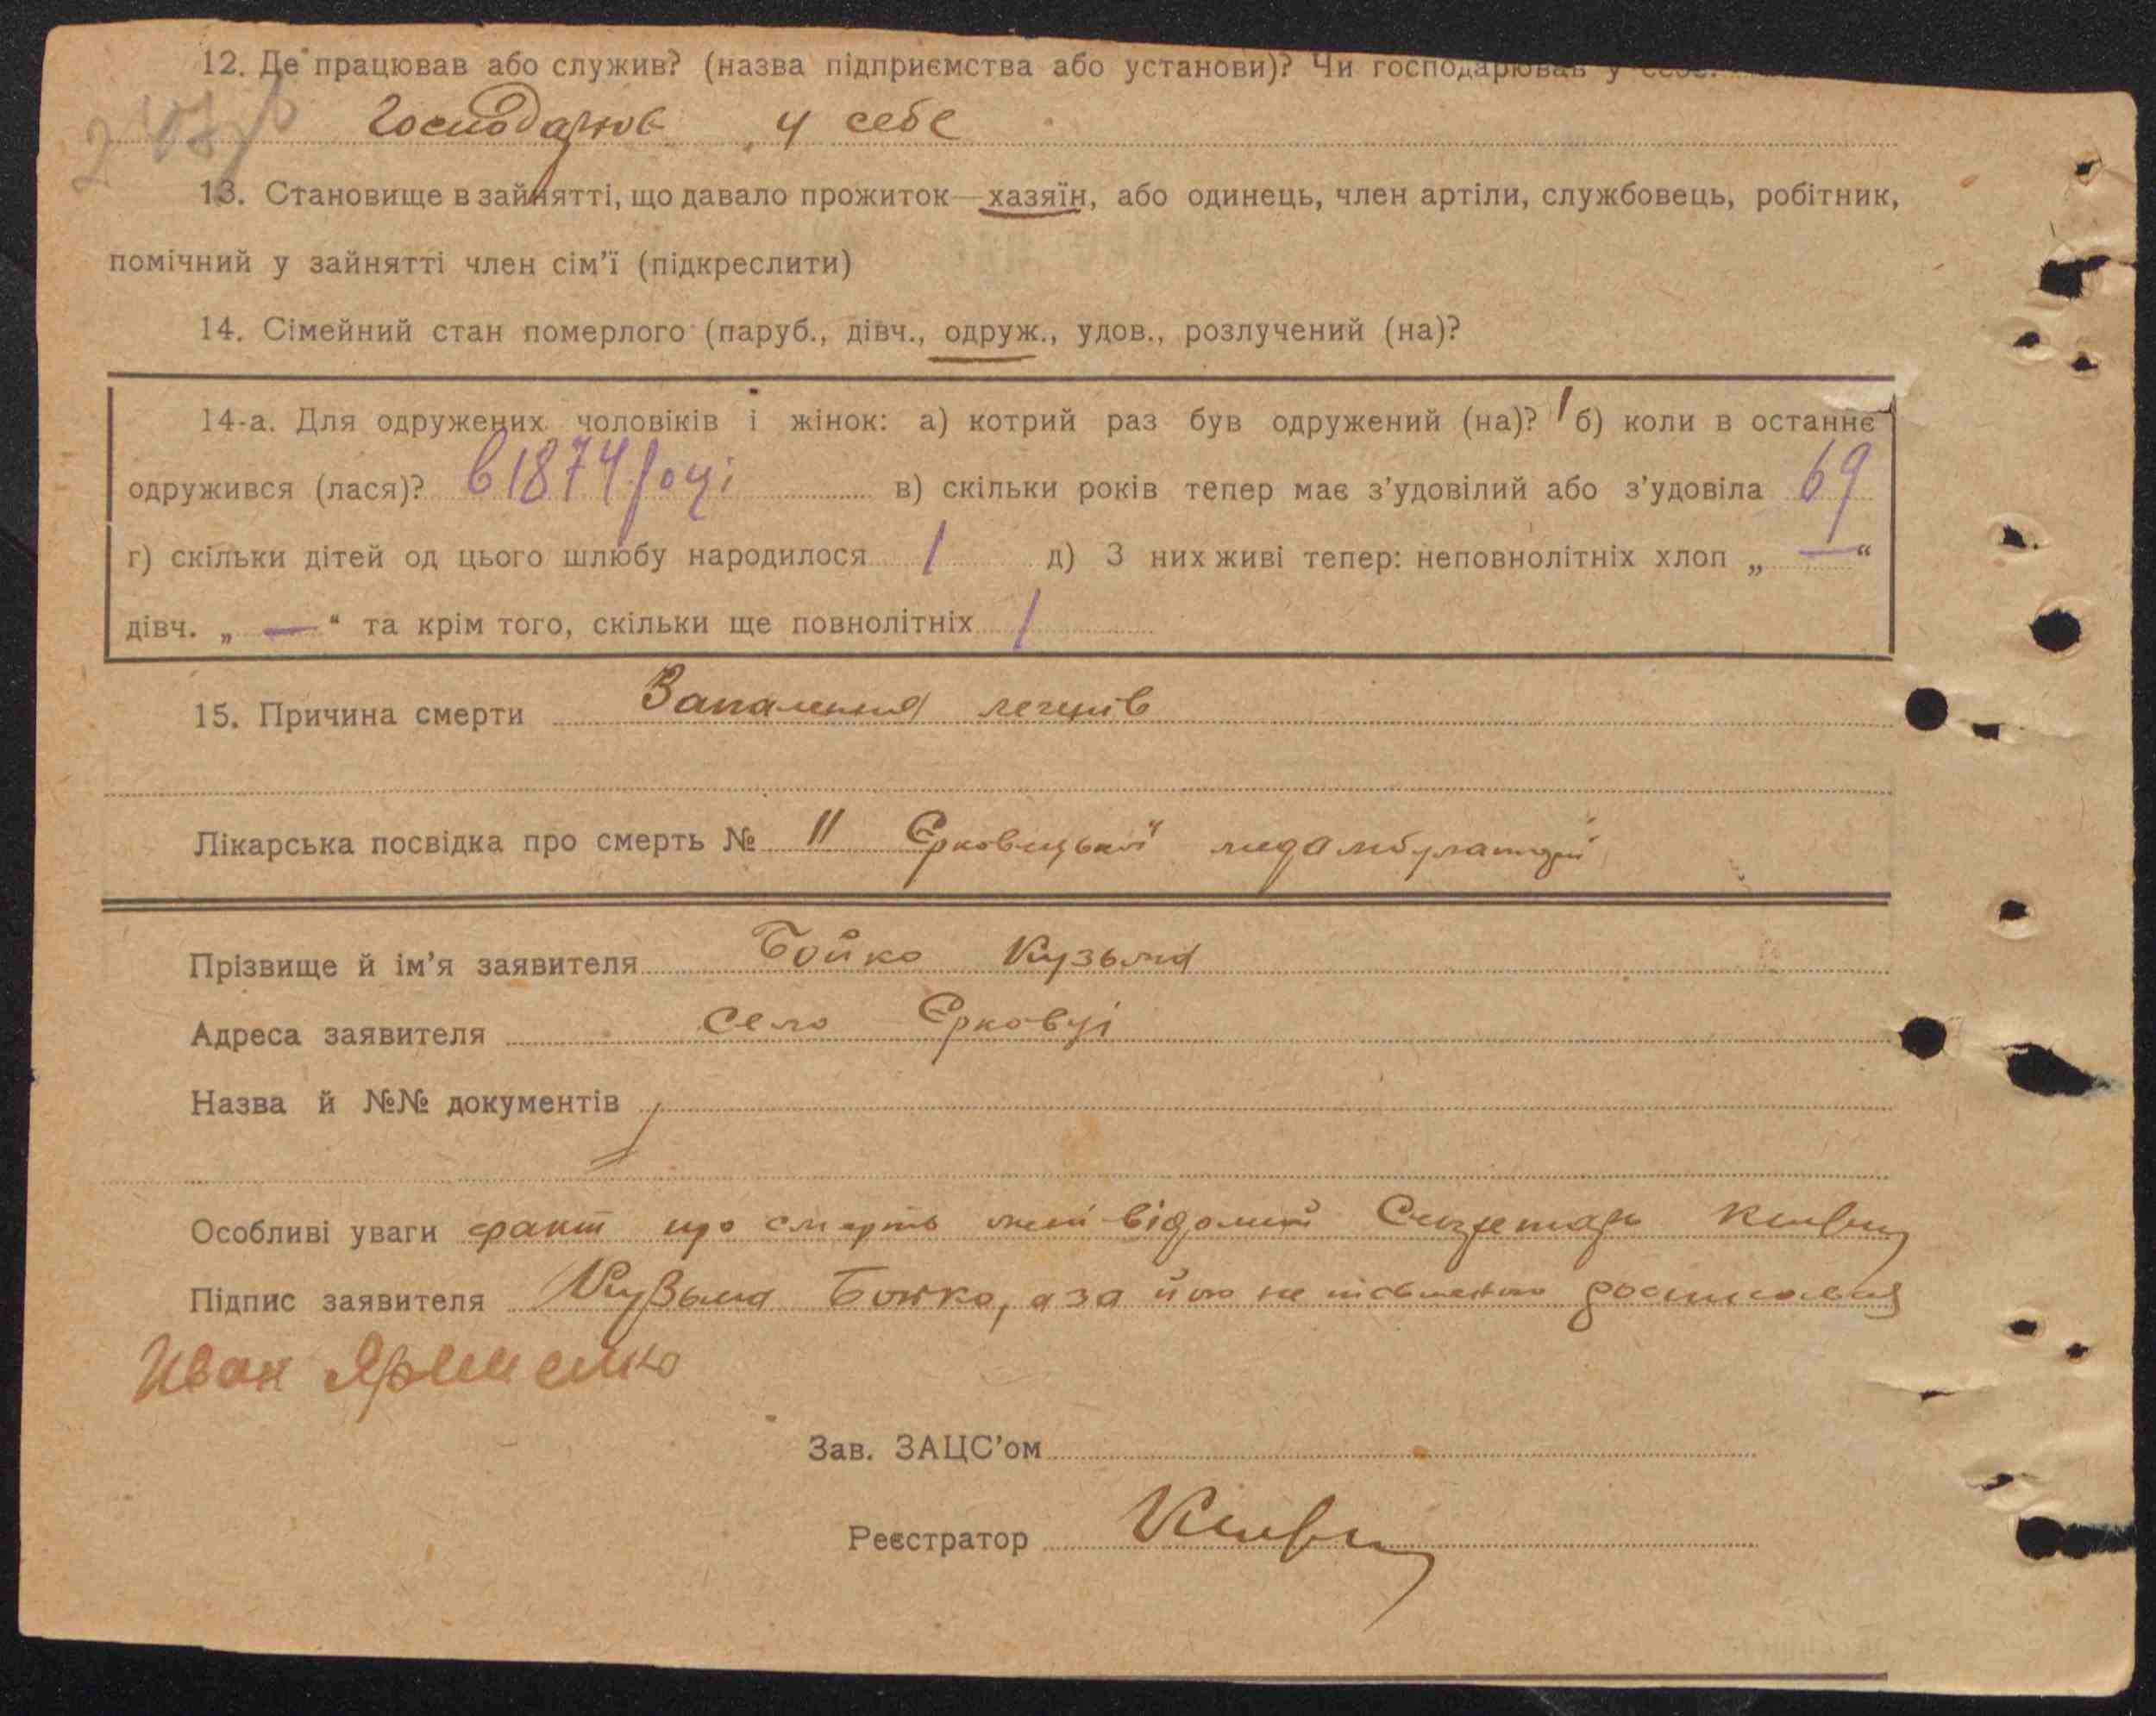 12. Де працював або служив? (назва підприємства або установи)? Чи господарював у себе.
Господарюв у себе
13. Становище в зайнятті, що давало прожиток—хазяїн, або одинець, член артіли, службовець, робітник,
помічний у зайнятті член сім'ї (підкреслити)
14. Сімейний стан померлого (паруб., дівч., одруж., удов., розлучений (на)?
14-а. Для одружених чоловіків і жінок: а) котрий раз був одружений (на)? 1 б) коли в останнє
одружився (лася)? в 1874 році в) скільки років тепер має з'удовілий або з'удовіла 69
г) скільки дітей од цього шлюбу народилося 1 д) З них живі тепер: неповнолітніх хлоп „ — “
дівч. „ — “ та крім того, скільки ще повнолітніх 1
15. Причина смерти Запалення легенів
Лікарська посвідка про смерть № 11 Єрковецької медамбулаторії
Прізвище й ім'я заявителя Бойко Кузьма
Адреса заявителя село Єрковці
Назва й №№ документів
Особливі уваги факт про смерть мені відомий Секретарь
Підпис заявителя Кузьма Бойко, а за його не письменого росписався
Иван Ярмешко
Зав. ЗАЦС'ом
Реєстратор